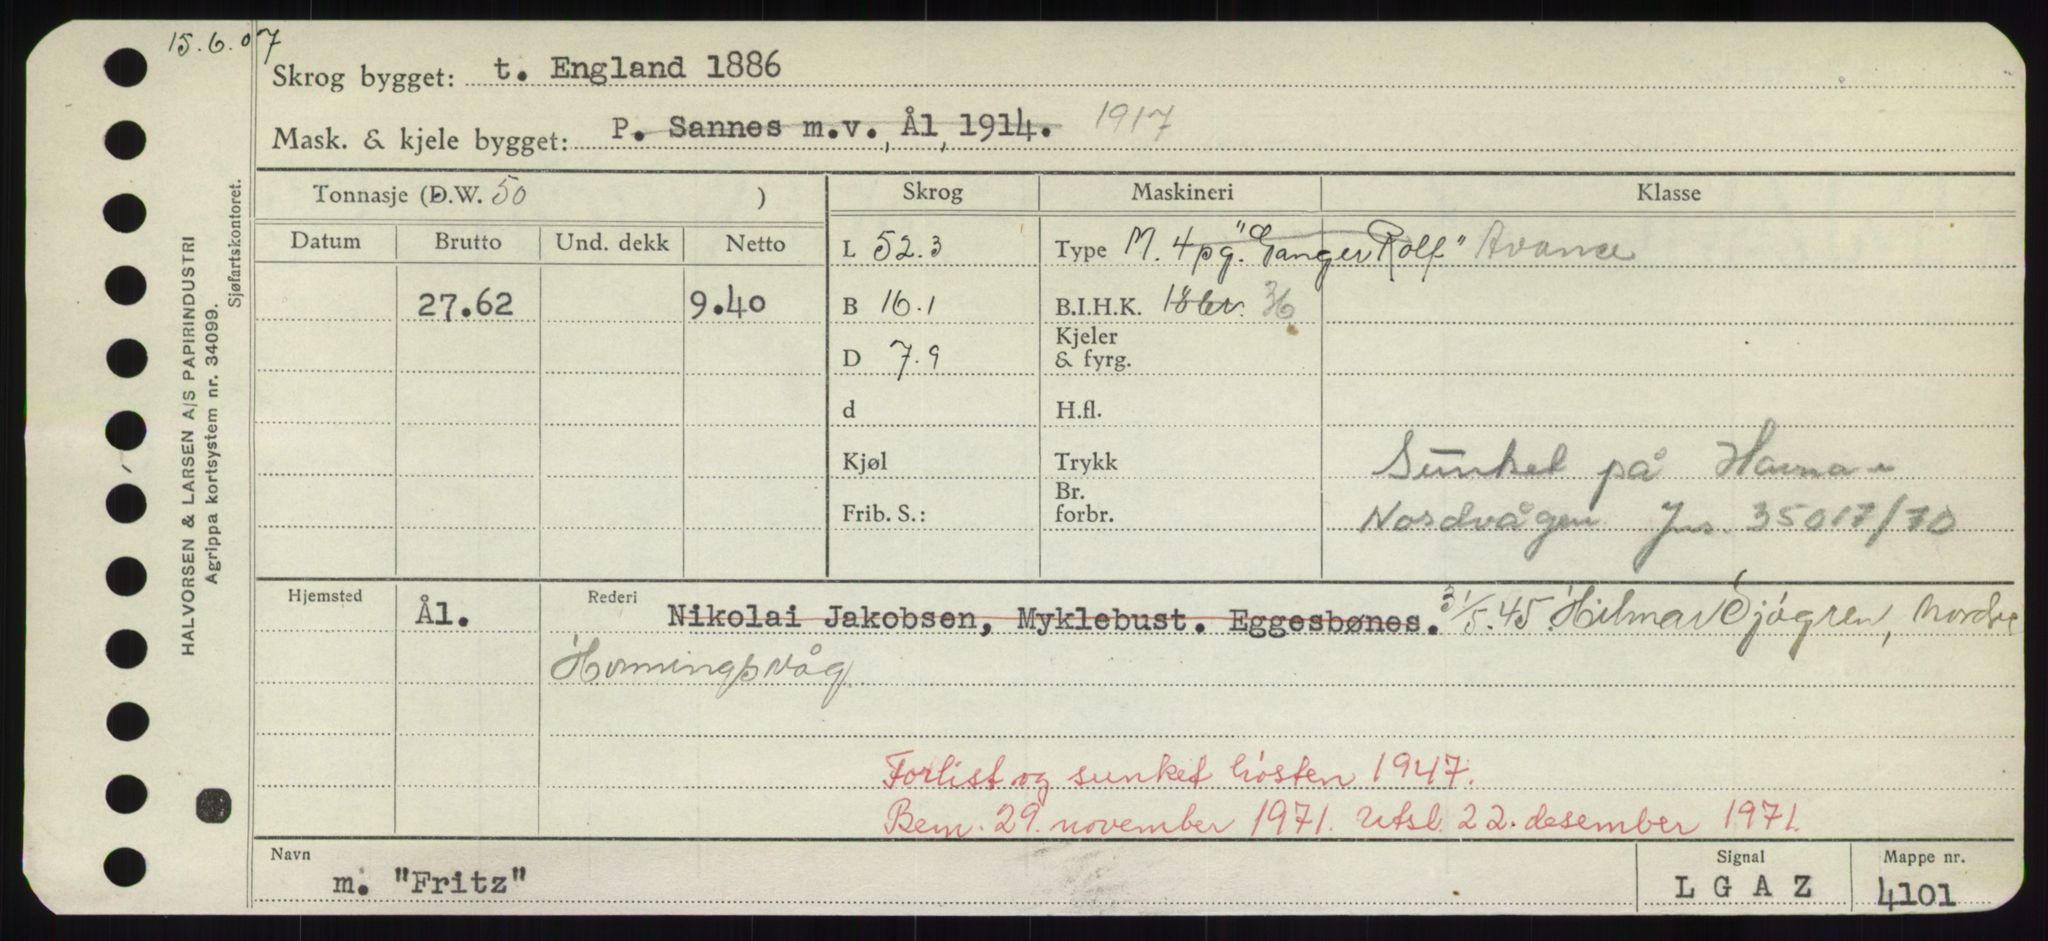 15.6.07
Skrog bygget: t. England 1886
Mask. & kjele bygget: P. Sannes m.v., Ål, 1914. 1917
Tonnasje (D.W. 50 )
Skrog
Maskineri
Klasse
Datum
Brutto
Und. dekk
Netto
27.62
9.40
L 52.3
B 16.1
D 7.9
d
Kjøl
Frib. S.:
Type M. 4 pg. "Ganger Rolf" Avance
B.I.H.K. 18 br. 36
Kjeler
& fyrg.
H.fl.
Trykk
Br.
forbr.
Sunket på Havna
Nordvågen Jns. 35017/70
Hjemsted Ål.
Rederi Nikolai Jakobsen, Myklebust. Eggesbønes. 31/5.45. Hilmar Sjøgren, Nordre
Honningsvåg
Forlist og sunket høsten 1947.
Bem. 29. november 1971. Utsl. 22. desember 1971.
Navn
m. "Fritz"
Signal
L G A Z
Mappe nr.
4101
HALVORSEN & LARSEN A/S PAPIRINDUSTRI
Agrippa kortsystem nr. 34099.
Sjøfartskontoret.